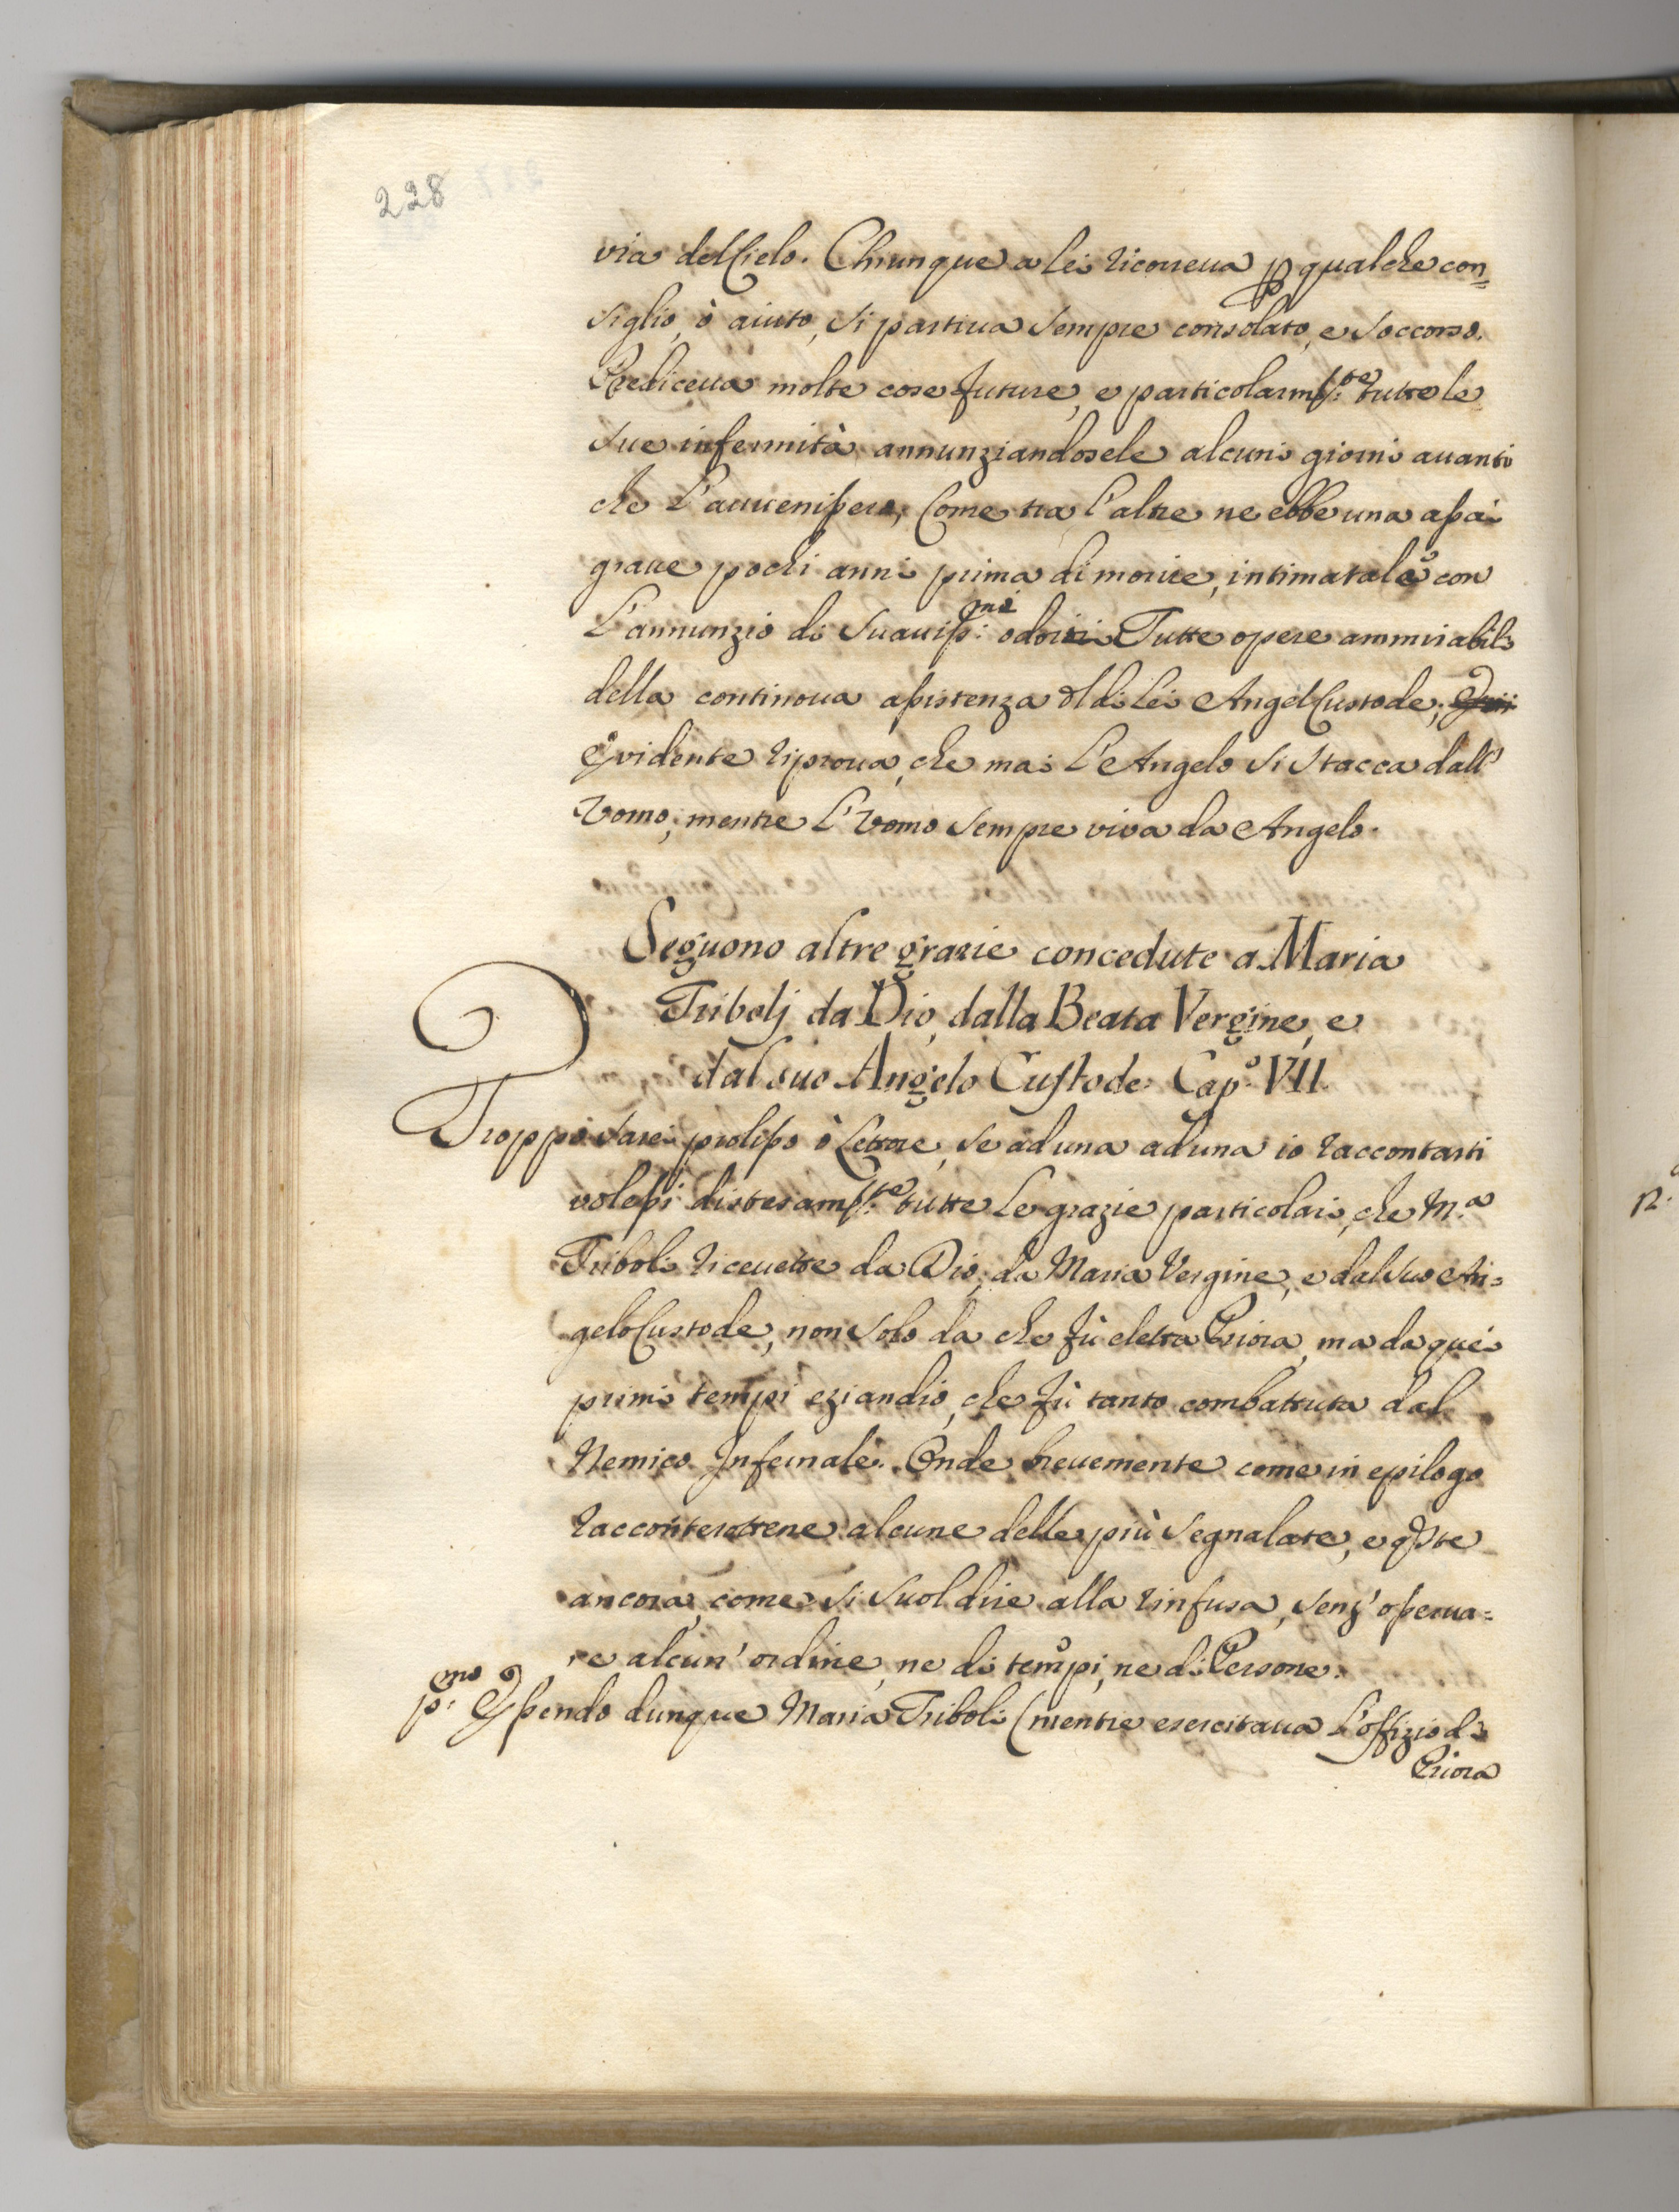 228
via del Cielo. Chiunque a lei ricorreua p qualche con=
siglio, ò aiuto, si partiua sempre consolato, e soccorso.
Prediceua molte cose future, e particolarmte: tutte le
sue infermità annunziandosele alcuni giorni auanti
che l'auuenissero, Come tra l'altre ne ebbe una assai
graue pochi anni prima di morire, intimatale con
L'annunzio di suauissmi: odori. Tutte opere ammirabili
della continoua assistenza dl di lei Angel Custode,
Evidente riproua, che mai l'Angelo si stacca dall'
Vomo, mentre l'Vomo sempre viva da Angelo.
Seguono altre grazie concedute a Maria
Tribolj da Dio, dalla Beata Vergine, e
dal suo Angelo Custode. Capo: VII.
Troppo sarei prolisso ò Lettore, se ad una ad una io raccontarti
volessi distesamte: tutte le grazie particolari, che M.a
Triboli riceuette da Dio, da Maria Vergine, e dal suo An=
gelo Custode, non solo da che fù eletta Priora, ma da quei
primi tempi eziandio, che fù tanto combattuta dal
Nemico Infernale. Onde breuemente come in epilogo
racconterottene alcune delle più segnalate, e qste
ancora, come si suol dire alla rinfusa, senz' osserua=
re alcun' ordine, ne di tempi, ne di Persone.
pmo: Essendo dunque Maria Triboli (mentre esercitaua l'offizio di
Priora